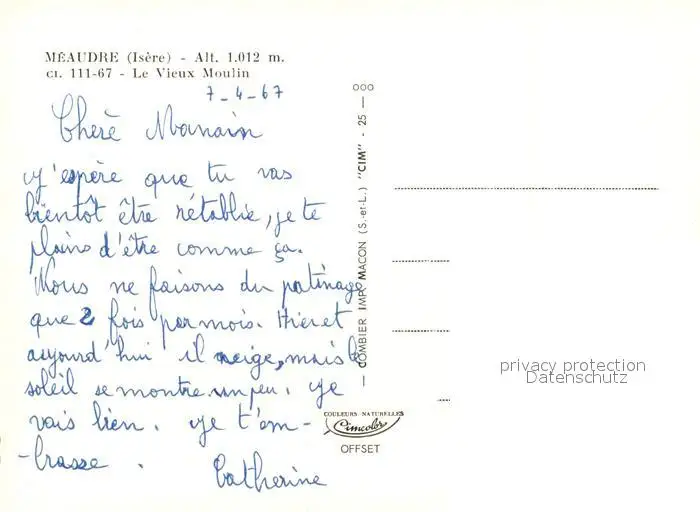 MÉAUDRE (Isère) - Alt. 1.012 m.
CI. 111-67 - Le Vieux Moulin
7-4-67
Chère Manain
J'espère que tu vas
bientôt être rétablie, je te
plains d'être comme ça.
Nous ne faisons du patinage
que 2 fois par mois. Hier et
aujourd'hui il neige, mais le
soleil se montre un peu. Je
vais bien. Je t'em-
-brasse.
Catherine
COMBIER IMP. MACON (S.-et-L.) "CIM" - 25 -
COULEURS NATURELLES
Cimcolor
OFFSET
privacy protection
Datenschutz